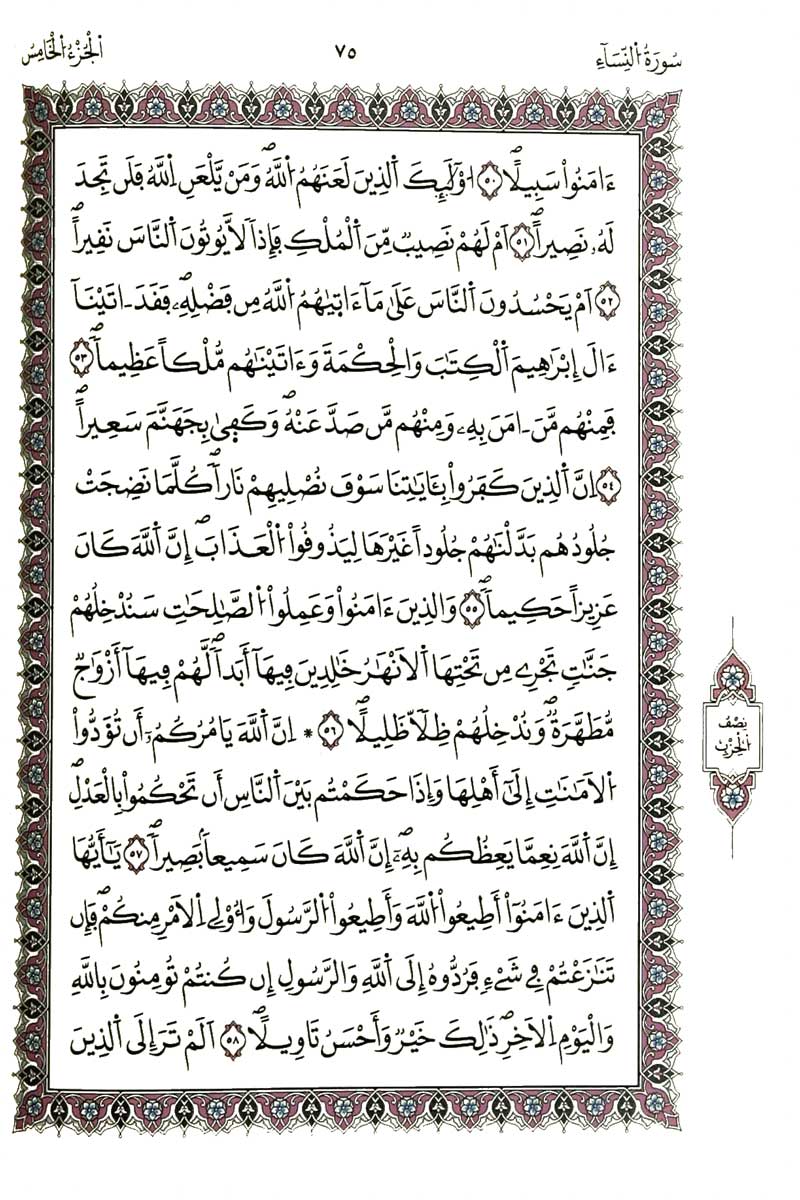 سُورَةُ اُ۬لنِّسَآءِ
٧٥
اَ۬لْجُزْءُ اُ۬لْخَامِسُ
ءَامَنُواْ سَبِيلاًۖ ٥٠ ا۟وْلَٰٓئِكَ اَ۬لذِينَ لَعَنَهُمُ اُ۬للَّهُۖ وَمَنْ يَّلْعَنِ اِ۬للَّهُ فَلَن تَجِدَ
لَهُۥ نَصِيراًۖ ٥١ اَمْ لَهُمْ نَصِيبٞ مِّنَ اَ۬لْمُلْكِ فَإِذاٗ لَّا يُوتُونَ اَ۬لنَّاسَ نَقِيراًۖ
٥٢ اَمْ يَحْسُدُونَ اَ۬لنَّاسَ عَلَىٰ مَآ ءَاتٜيٰهُمُ اُ۬للَّهُ مِن فَضْلِهِۦۖ فَقَدَ اٰتَيْنَآ
ءَالَ إِبْرَٰهِيمَ اَ۬لْكِتَٰبَ وَالْحِكْمَةَ وَءَاتَيْنَٰهُم مُّلْكاً عَظِيماًۖ ٥٣
فَمِنْهُم مَّنَ اٰمَنَ بِهِۦ وَمِنْهُم مَّن صَدَّ عَنْهُۖ وَكَفٜىٰ بِجَهَنَّمَ سَعِيراًۖ
٥٤ اِنَّ اَ۬لذِينَ كَفَرُواْ بِـَٔايَٰتِنَا سَوْفَ نُصْلِيهِمْ نَاراٗۖ كُلَّمَا نَضِجَتْ
جُلُودُهُم بَدَّلْنَٰهُمْ جُلُوداً غَيْرَهَا لِيَذُوقُواْ اُ۬لْعَذَابَۖ إِنَّ اَ۬للَّهَ كَانَ
عَزِيزاً حَكِيماٗۖ ٥٥ وَالذِينَ ءَامَنُواْ وَعَمِلُواْ اُ۬لصَّٰلِحَٰتِ سَنُدْخِلُهُمْ
جَنَّٰتٖ تَجْرِے مِن تَحْتِهَا اَ۬لَانْهَٰرُ خَٰلِدِينَ فِيهَآ أَبَداٗۖ لَّهُمْ فِيهَآ أَزْوَٰجٞ
مُّطَهَّرَةٞۖ وَنُدْخِلُهُمْ ظِلّاٗ ظَلِيلاًۖ ٥٦ * اِنَّ اَ۬للَّهَ يَامُرُكُمُۥٓ أَن تُؤَدُّواْ
اُ۬لَامَٰنَٰتِ إِلَىٰٓ أَهْلِهَا وَإِذَا حَكَمْتُم بَيْنَ اَ۬لنَّاسِ أَن تَحْكُمُواْ بِالْعَدْلِۖ
إِنَّ اَ۬للَّهَ نِعِمَّا يَعِظُكُم بِهِۦٓۖ إِنَّ اَ۬للَّهَ كَانَ سَمِيعاَۢ بَصِيراٗۖ ٥٧ يَٰٓأَيُّهَا
اَ۬لذِينَ ءَامَنُوٓاْ أَطِيعُواْ اُ۬للَّهَ وَأَطِيعُواْ اُ۬لرَّسُولَ وَأُوْلِے اِ۬لَامْرِ مِنكُمْۖ فَإِن
تَنَٰزَعْتُمْ فِے شَےْءٖ فَرُدُّوهُ إِلَى اَ۬للَّهِ وَالرَّسُولِ إِن كُنتُمْ تُومِنُونَ بِاللَّهِ
وَالْيَوْمِ اِ۬لَاخِرِۖ ذَٰلِكَ خَيْرٞ وَأَحْسَنُ تَاوِيلاًۖ ٥٨ اَلَمْ تَرَ إِلَى اَ۬لذِينَ
نِصْفُ
اُ۬لْحِزْبِ